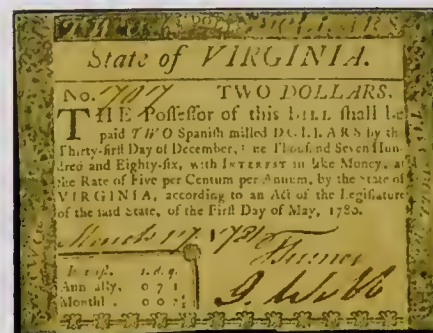 TWO DOLLARS.
State of VIRGINIA.
No. 707 TWO DOLLARS.
THE Poſſeſſor of this BILL ſhall be
paid TWO Spaniſh milled DOLLARS by the
Thirty-firſt Day of December, One Thouſand Seven Hun-
dred and Eighty-ſix, with INTEREST in like Money, at
the Rate of Five per Centum per Annum, by the State of
VIRGINIA, according to an Act of the Legiſlature
of the ſaid State, of the Firſt Day of May, 1780.
March 17 1781
Turner
J. Webb
s. d. q.
Annually. 0 7 1
Monthl 0 0